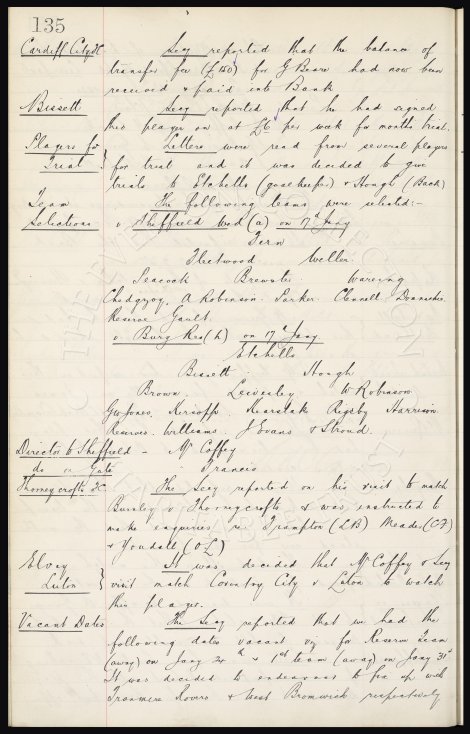 135
Cardiff City FC Secy reported that the balance of
transfer fee (£150) for G Beare had now been
received & paid into Bank
Bissett Secy reported that he had signed
this player on at £6 per week for months trial.
Players for Letters were read from several players
Trial for trial and it was decided to give
trials to Etchells (goalkeeper) & Hough (Back)
Team The following teams were selected:-
Selections v. Sheffield Wed (a) on 17th Jany
Fern
Fleetwood Weller
Peacock Brewster Wareing
Chedgzoy, A Robinson. Parker. Clennell. Donnachie.
Reserve Gault.
v. Bury Res (h) on 17th Jany
Etchells
Bissett. Hough
Brown. Leivesley W Robinson
G W Jones, Kirsopp. Rigsby Harrison
Reserves. Williams. J Evans & Stroud.
Director to Sheffield - Mr Coffey
do on Gate Francis
Thorneycrofts FC. The Secy reported on his visit to match
Burnley v Thorneycrofts & was instructed to
make enquiries re. Frampton (LB) Meades (CF)
& Youdall (OL)
Elvey It was decided that Mr Coffey & Secy
Luton visit match Coventry City v Luton to watch
this player.
Vacant Dates The Secy reported that we had the
following dates vacant viz for Reserve Team
(away) on Jany 24th & 1st team (away) on Jany 31st
It was decided to endeavour to fix up with
Tranmere Rovers & West Bromwich respectively